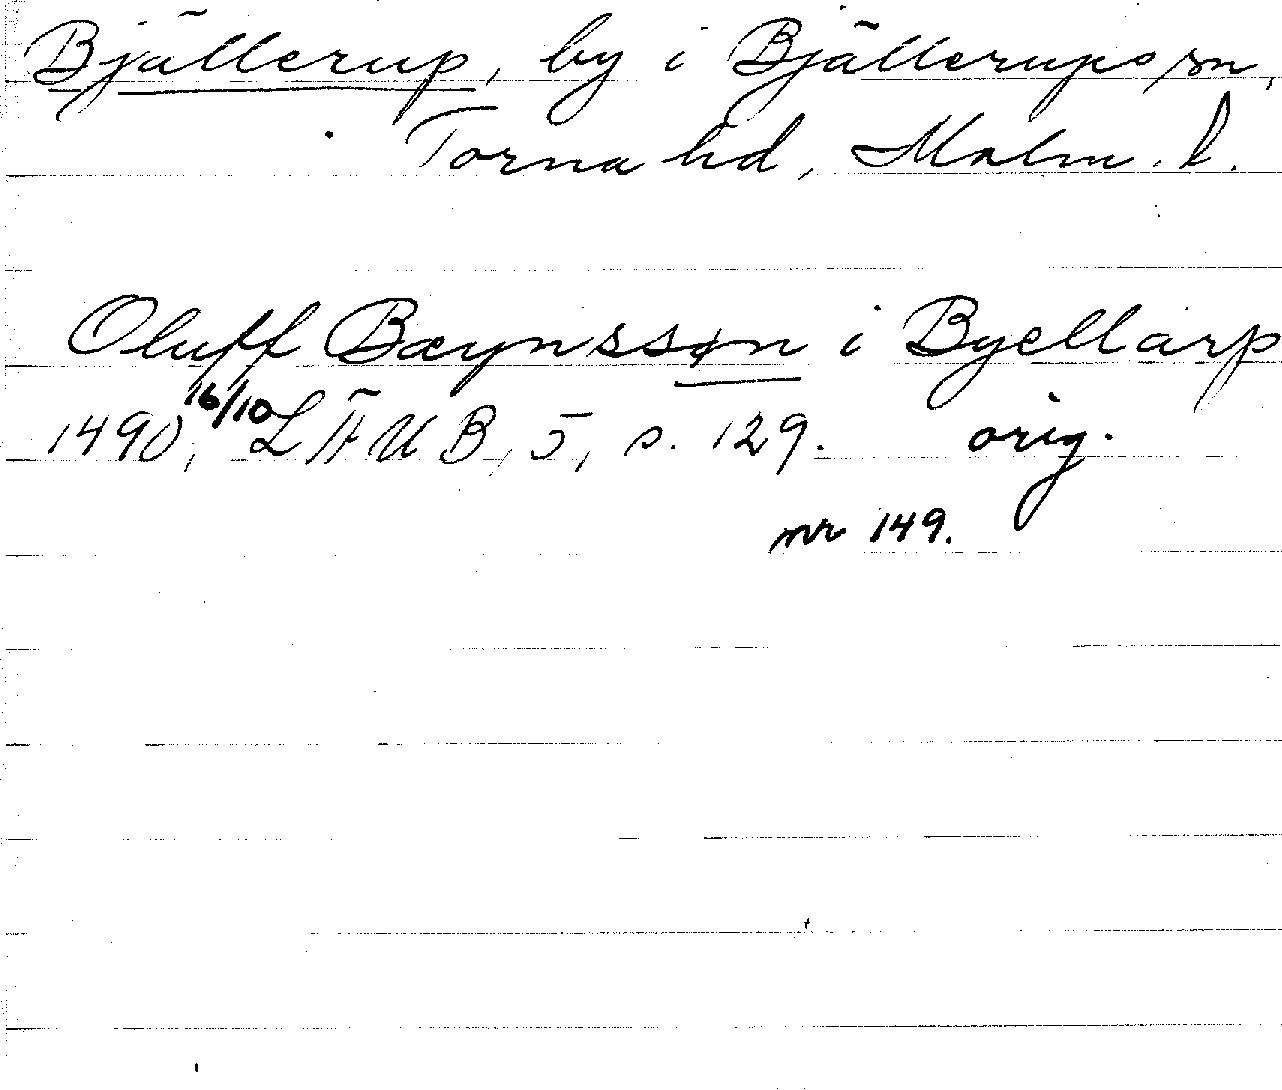 Bjällerup, by i Bjällerups sn,
Torna hd, Malm. l.
Oluff Bæynssøn i Byellarp
1490, 16/10 LÄUB, 5, s. 129. orig.
nr 149.